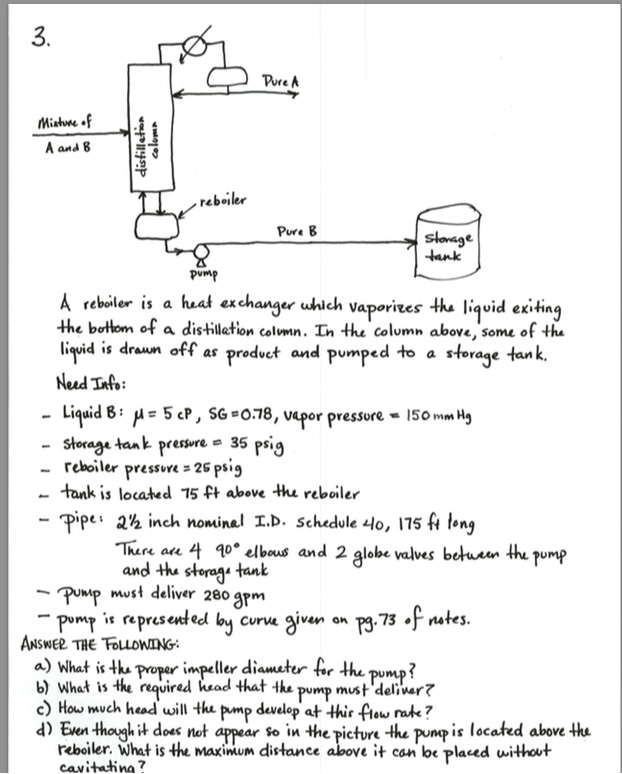 3.
Pure A
Mixture of
A and B
distillation
column
reboiler
Pure B
Storage
tank
pump
A reboiler is a heat exchanger which vaporizes the liquid exiting
the bottom of a distillation column. In the column above, some of the
liquid is drawn off as product and pumped to a storage tank.
Need Info:
- Liquid B: μ = 5 cP, SG = 0.78, vapor pressure = 150 mm Hg
- storage tank pressure = 35 psig
- reboiler pressure = 25 psig
- tank is located 75 ft above the reboiler
- pipe: 2½ inch nominal I.D. Schedule 40, 175 ft long
There are 4 90° elbows and 2 globe valves between the pump
and the storage tank
- pump must deliver 280 gpm
- pump is represented by curve given on pg. 73 of notes.
ANSWER THE FOLLOWING:
a) What is the proper impeller diameter for the pump?
b) What is the required head that the pump must deliver?
c) How much head will the pump develop at this flow rate?
d) Even though it does not appear so in the picture the pump is located above the
reboiler. What is the maximum distance above it can be placed without
cavitating?